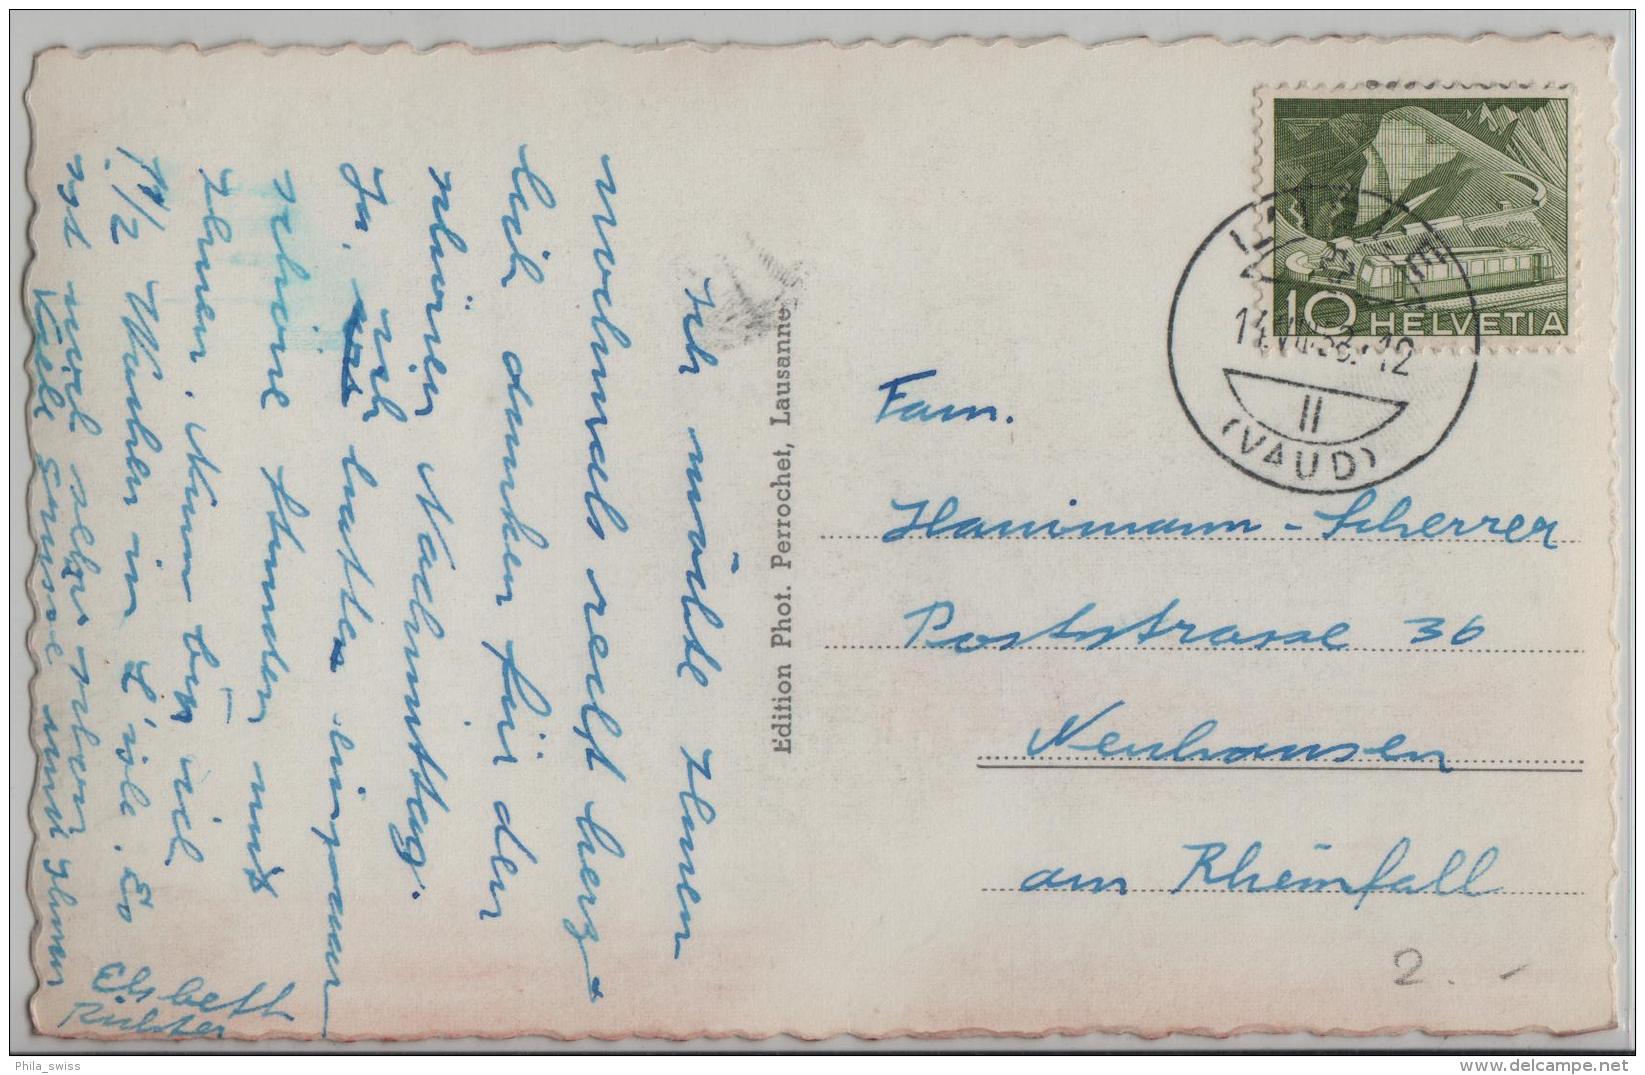 Ich möchte Ihnen
nochmals recht herz-
lich danken für den
schönen Nachmittag.
Ja, wir hatten ein paar
schöne Stunden mit
Ihnen. Nun bin ich
1 1/2 Wochen in L'isle. Es
ist noch selber schön
Viele Grüsse an Ihnen
Elsbeth
Richter
Edition Phot. Perrochet, Lausanne
10 HELVETIA
L'ISLE
(VAUD)
II
Fam.
Hanimann-Scherrer
Poststrasse 36
Neuhausen
am Rheinfall
2.-
Phila_swiss
delcampe.net